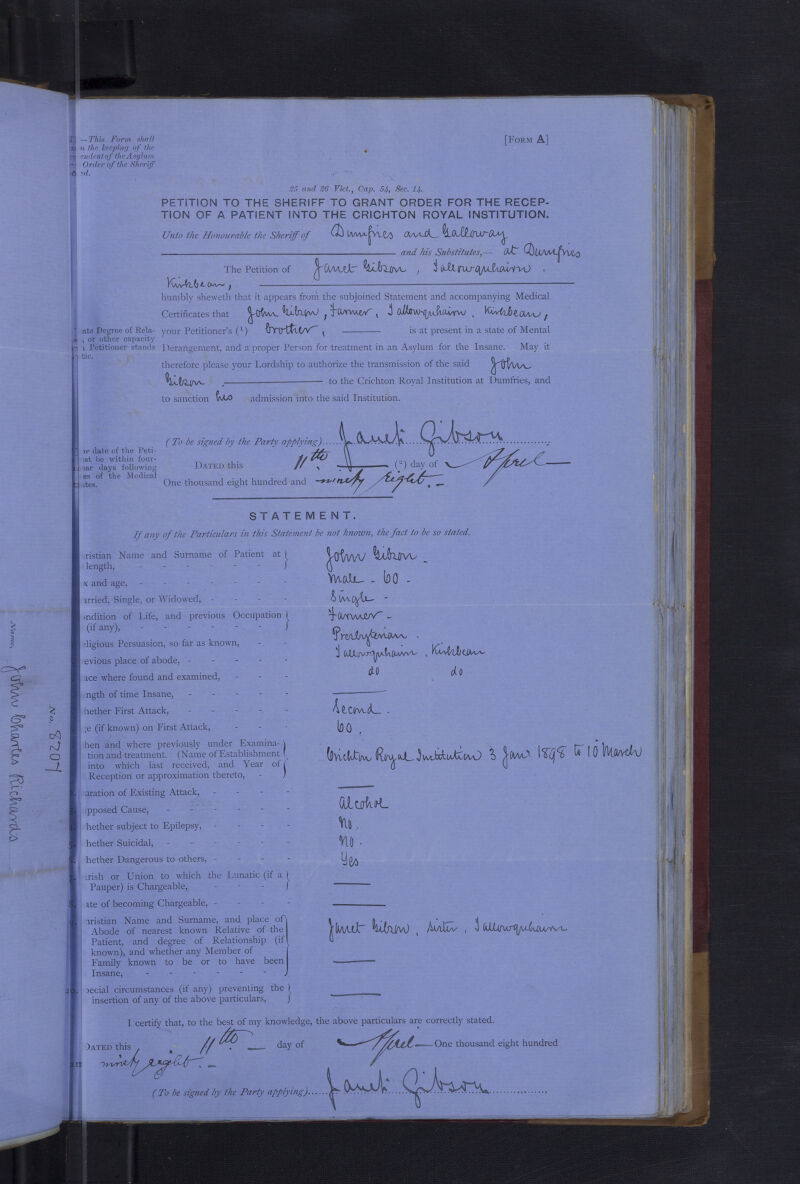 —This Form shall
n the keeping of the
endent of the Asylum
Order of the Sheriff
ed.
[FORM A]
25 and 26 Vict., Cap. 54, Sec. 14.
PETITION TO THE SHERIFF TO GRANT ORDER FOR THE RECEP-
TION OF A PATIENT INTO THE CRICHTON ROYAL INSTITUTION.
Unto the Honourable the Sheriff of Dumfries and Galloway
and his Substitutes,— at Dumfries
The Petition of Janet Gibson, Tallowquhairn,
Kirkbean,
humbly sheweth that it appears from the subjoined Statement and accompanying Medical
Certificates that John Gibson, Farmer, Tallowquhairn, Kirkbean,
your Petitioner's (1) brother, is at present in a state of Mental
Derangement, and a proper Person for treatment in an Asylum for the Insane. May it
therefore please your Lordship to authorize the transmission of the said John
Gibson, to the Crichton Royal Institution at Dumfries, and
to sanction his admission into the said Institution.
ate Degree of Rela-
, or other capacity
Petitioner stands
tic.
(To be signed by the Party applying) Janet Gibson
DATED this 11th (2) day of April
One thousand eight hundred and ninety eight.
date of the Peti-
be within four-
days following
of the Medical
STATEMENT.
If any of the Particulars in this Statement be not known, the fact to be so stated.
ristian Name and Surname of Patient at length, John Gibson
x and age, Male - 60 -
arried, Single, or Widowed, Single -
ndition of Life, and previous Occupation (if any), Farmer -
eligious Persuasion, so far as known, Presbyterian.
evious place of abode, Tallowquhairn, Kirkbean
ace where found and examined, do do
ngth of time Insane,
hether First Attack, Second.
ge (if known) on First Attack, 60.
hen and where previously under Examina-
tion and treatment. (Name of Establishment
into which last received, and Year of
Reception or approximation thereto, Crichton Royal Institution 3 Jan 1898 to 10 March
uration of Existing Attack,
pposed Cause, Alcohol
hether subject to Epilepsy, No.
hether Suicidal, No.
hether Dangerous to others, Yes
rish or Union to which the Lunatic (if a
Pauper) is Chargeable,
ate of becoming Chargeable,
ristian Name and Surname, and place of
Abode of nearest known Relative of the
Patient, and degree of Relationship (if
known), and whether any Member of
Family known to be or to have been
Insane, Janet Gibson, sister, Tallowquhairn
pecial circumstances (if any) preventing the
insertion of any of the above particulars,
I certify that, to the best of my knowledge, the above particulars are correctly stated.
DATED this 11th day of April One thousand eight hundred
ninety eight.
(To be signed by the Party applying) Janet Gibson
No. 8207
Name, John Charles Richards